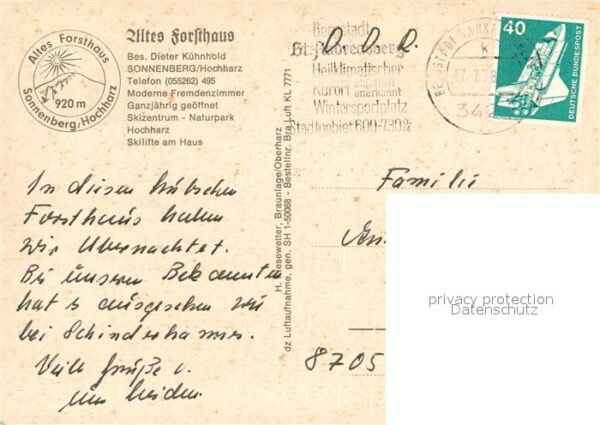 Altes Forsthaus
920 m
Sonnenberg/Hochharz
Altes Forsthaus
Bes. Dieter Kühnhold
SONNENBERG/Hochharz
Telefon (055262) 495
Moderne Fremdenzimmer
Ganzjährig geöffnet
Skizentrum - Naturpark
Hochharz
Skilifte am Haus
Bergstadt
St. Andreasberg
Heilklimatischer
Kurort
Wintersportplatz
Stadtgebiet 600-730
342
40
DEUTSCHE BUNDESPOST
H. Riesewetter, Braunlage/Oberharz
dz Luftaufnahme, gen. SH 1-50068 - Bestellnr. Bra Luft KL 7771
In diesem hübschen
Forsthaus haben
wir übernachtet.
Bei unseren Bekannten
hat s ausgesehen wie
bei Schinderhannes.
Viele Grüße v.
uns beiden
Familie
8705
privacy protection
Datenschutz